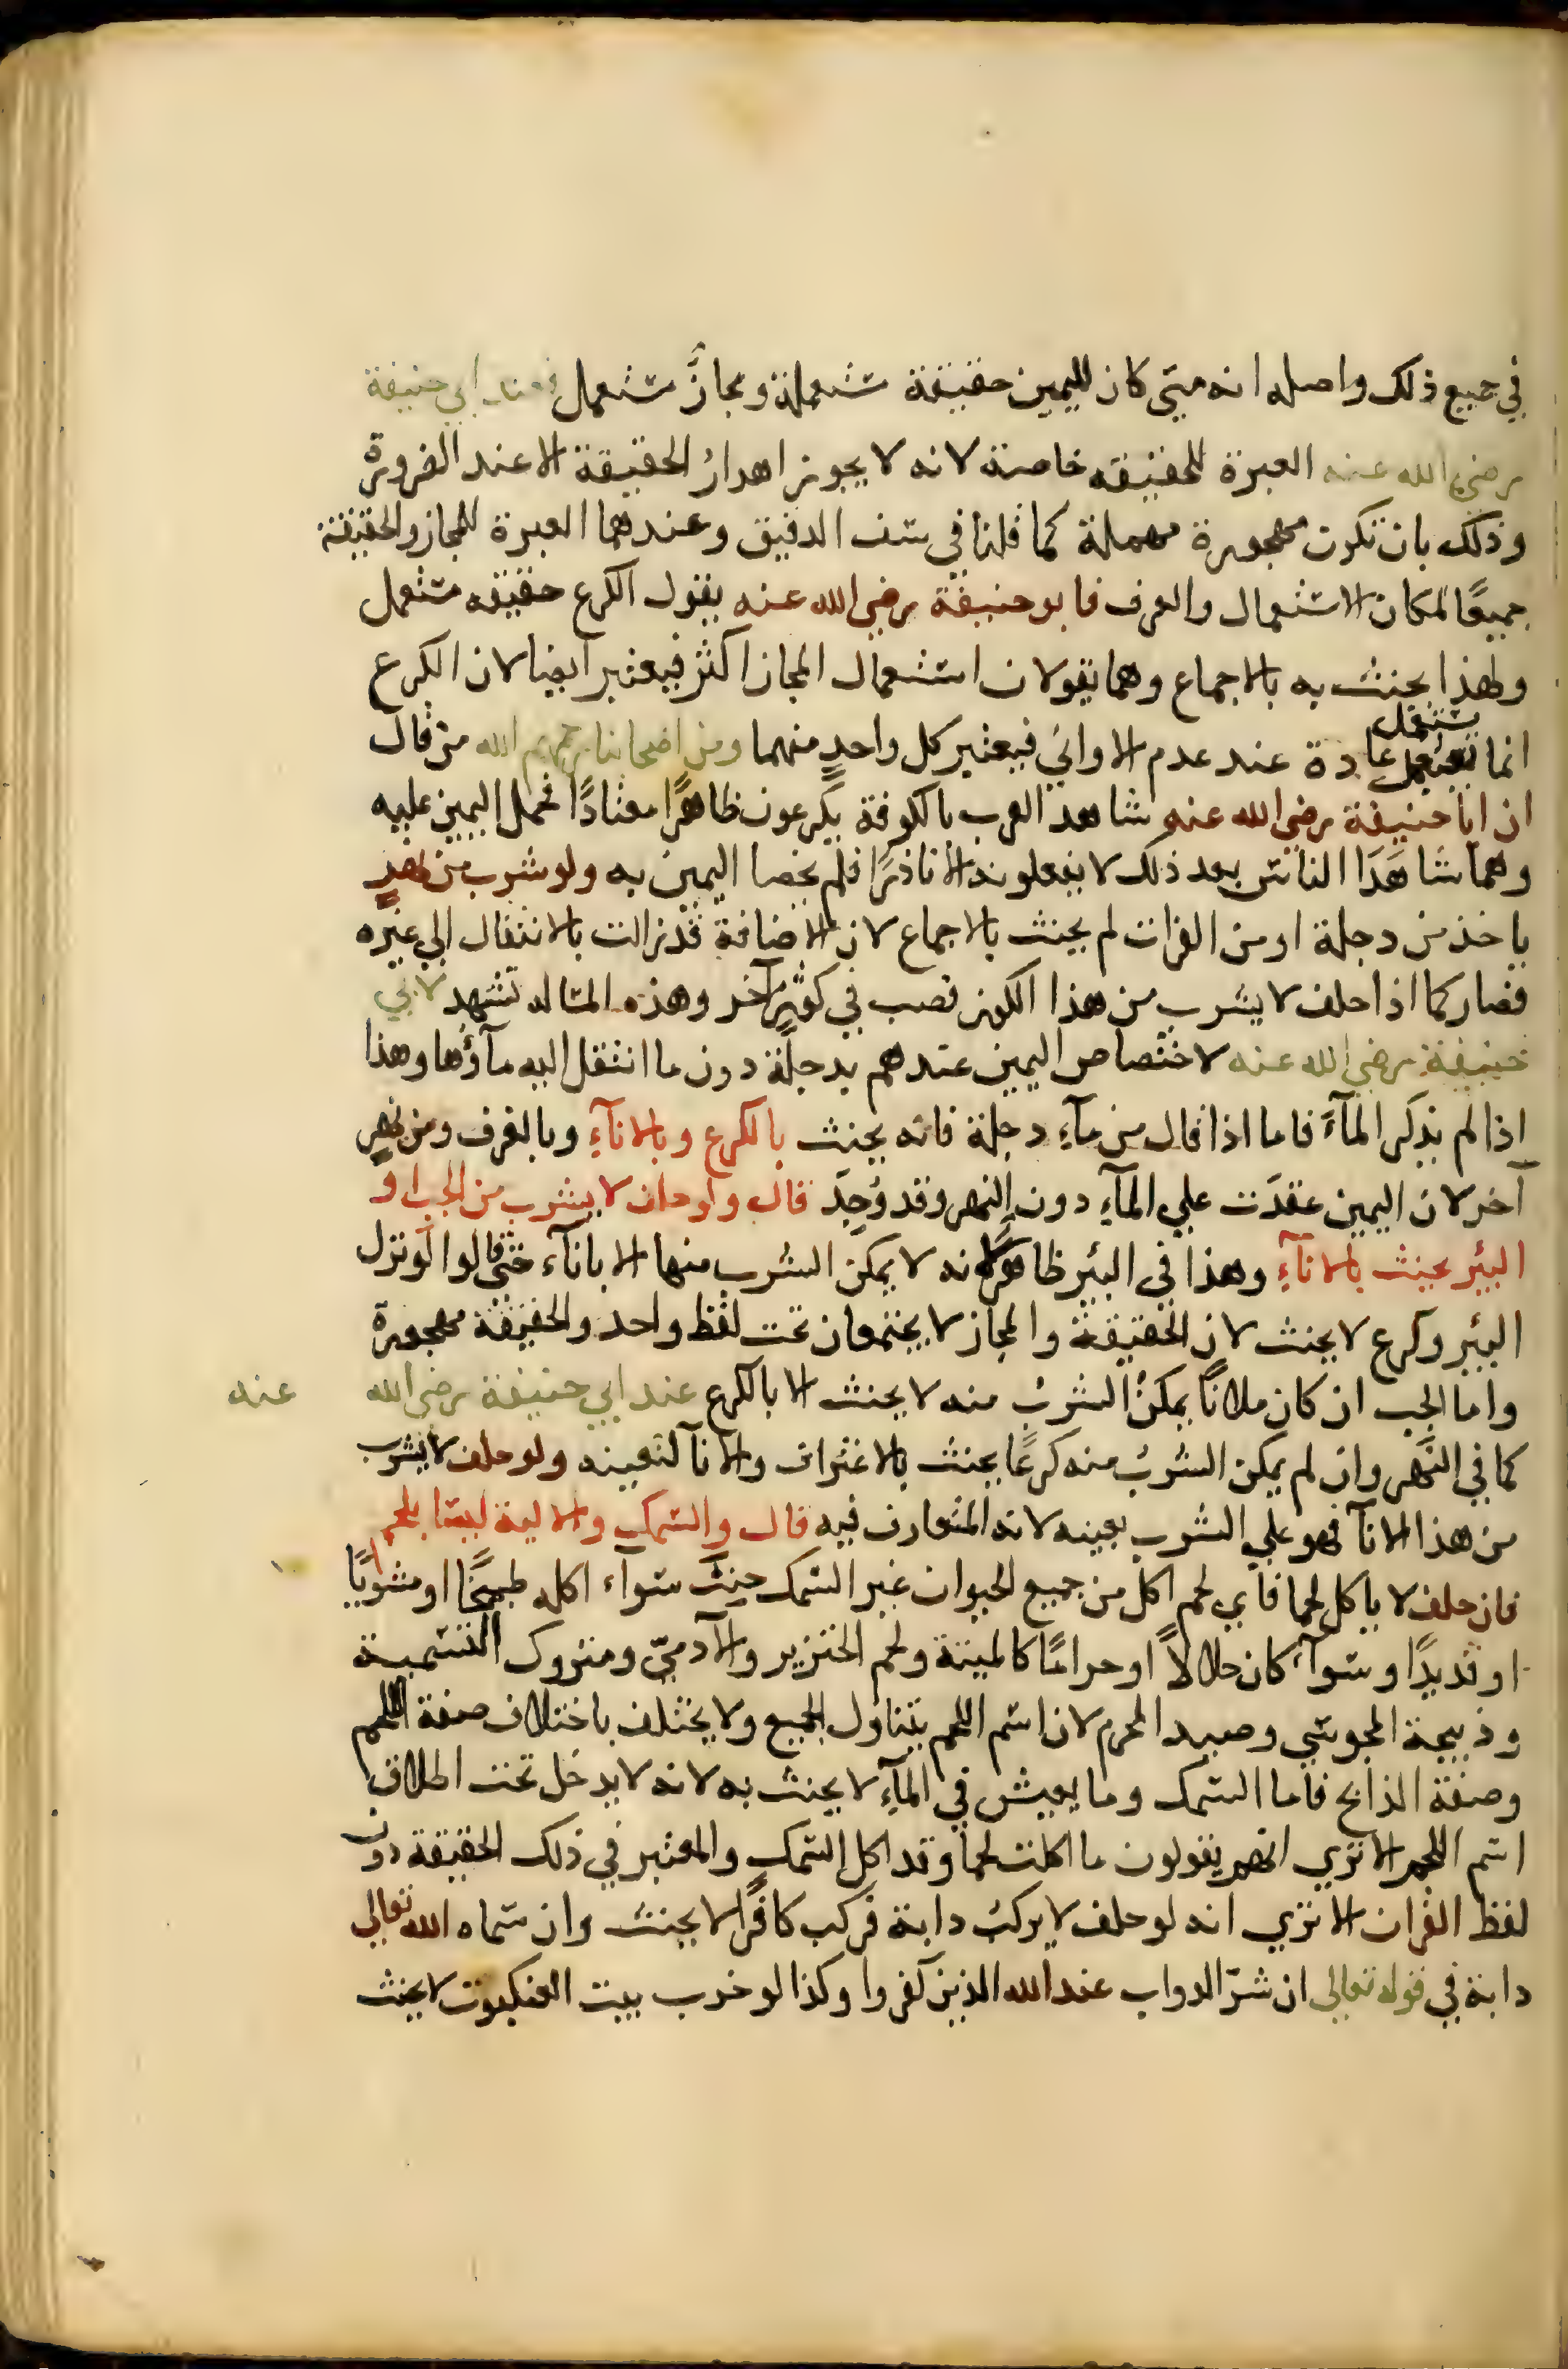 في جميع ذلك واصله انه متي كان لليمين حقيقة مستعملة ومجازٌ مستعمل فعند ابي حنيفة
رضي الله عنه العبرة للحقيقه خاصة لانه لا يجوز اهدارُ الحقيقة الا عند الضرورة
وذلك بان تكون مهجورة مهملة كما قلنا في سف الدقيق وعندهما العبرة للمجاز والحقيقة
جميعًا لمكان الاستعمال والعرف فابو حنيفة رضي الله عنه يقول الكرع حقيقه مستعمل
ولهذا يحنث به بالاجماع وهما يقولان استعمال المجاز اكثر فيعتبر ايضا لان الكرع
يستعمل
انما عادة عند عدم الاواني فيعتبر كل واحدٍ منهما ومن اصحابنا رحمهم الله من قال
ان ابا حنيفة رضي الله عنه شاهد العرب بالكوفة يكرعون ظاهرًا معتادًا فحمل اليمين عليه
وهما شاهَدَا الناس بعد ذلك لا يفعلونه الا نادرًا فلم يخصا اليمين به ولو شرب من نهرٍ
ياخذ من دجلة او من الفرات لم يحنث بالاجماع لان الاضافة قد زالت بالانتقال الي غيره
فصار كما اذا حلف لا يشرب من هذا الكوز فصب في كوزٍ آخر وهذه المساله تشهد لابي
حنيفة رضي الله عنه لاختصاص اليمين عندهم بدجلة دون ما انتقل اليه مآؤها وهذا
اذا لم يذكر المآءَ فاما اذا قال من مآءِ دجلة فانه يحنث بالكرع وبالانآءِ وبالغرف ومن نهرٍ
آخر لان اليمين عقدَت علي المآءِ دون النهر وقد وُجِدَ قال ولو حلف لا يشرب من الجب او
البئر يحنث بالانآءِ وهذا في البئر ظاهرٌ لانه لا يمكن الشرب منها الا بانآء حتي قالوا لو نزل
البئر وكرع لا يحنث لان الحقيقة والمجاز لا يجتمعان تحت لفظ واحد والحقيقة مهجورة
واما الجب ان كان ملانًا يمكنُ الشربُ منه لا يحنث الا بالكرع عند ابي حنيفة رضي الله عنه
كما في النَّهر وان لم يمكن الشربُ منه كرعًا يحنث بالاغتراف والانآ لتعينه ولو حلف لا يشرب
من هذا الانآ فهو علي الشرب بعينه لانه المتعارف فيه قال والسمك والالية ليسا بلحم
فان حلف لا ياكل لحما فاي لحم اكل من جميع الحيوان غير السمك حنث سوآء اكله طبيخًا او مشويًا
او قديدًا وسوآءٌ كان حلالاً او حرامًا كالميتة ولحم الخنزير والآدميّ ومتروك التسمية
وذبيحة المجوسي وصيد المحرم لان اسم اللحم يتناول الجميع ولا يختلف باختلاف صفة اللحم
وصفة الذابح فاما السمك وما يعيش في المآءِ لا يحنث به لانه لا يدخل تحت اطلاق
اسم اللحم الا تري انهم يقولون ما اكلت لحما وقد اكل السمك والمعتبر في ذلك الحقيقة دون
لفظ القران الا تري انه لو حلف لا يركبُ دابة فركب كافرًا لا يحنث وان سماه الله تعالي
دابة في قوله تعالي ان شرّ الدواب عند الله الذين كفروا وكذا لو خرب بيت العنكبوت لا يحنث